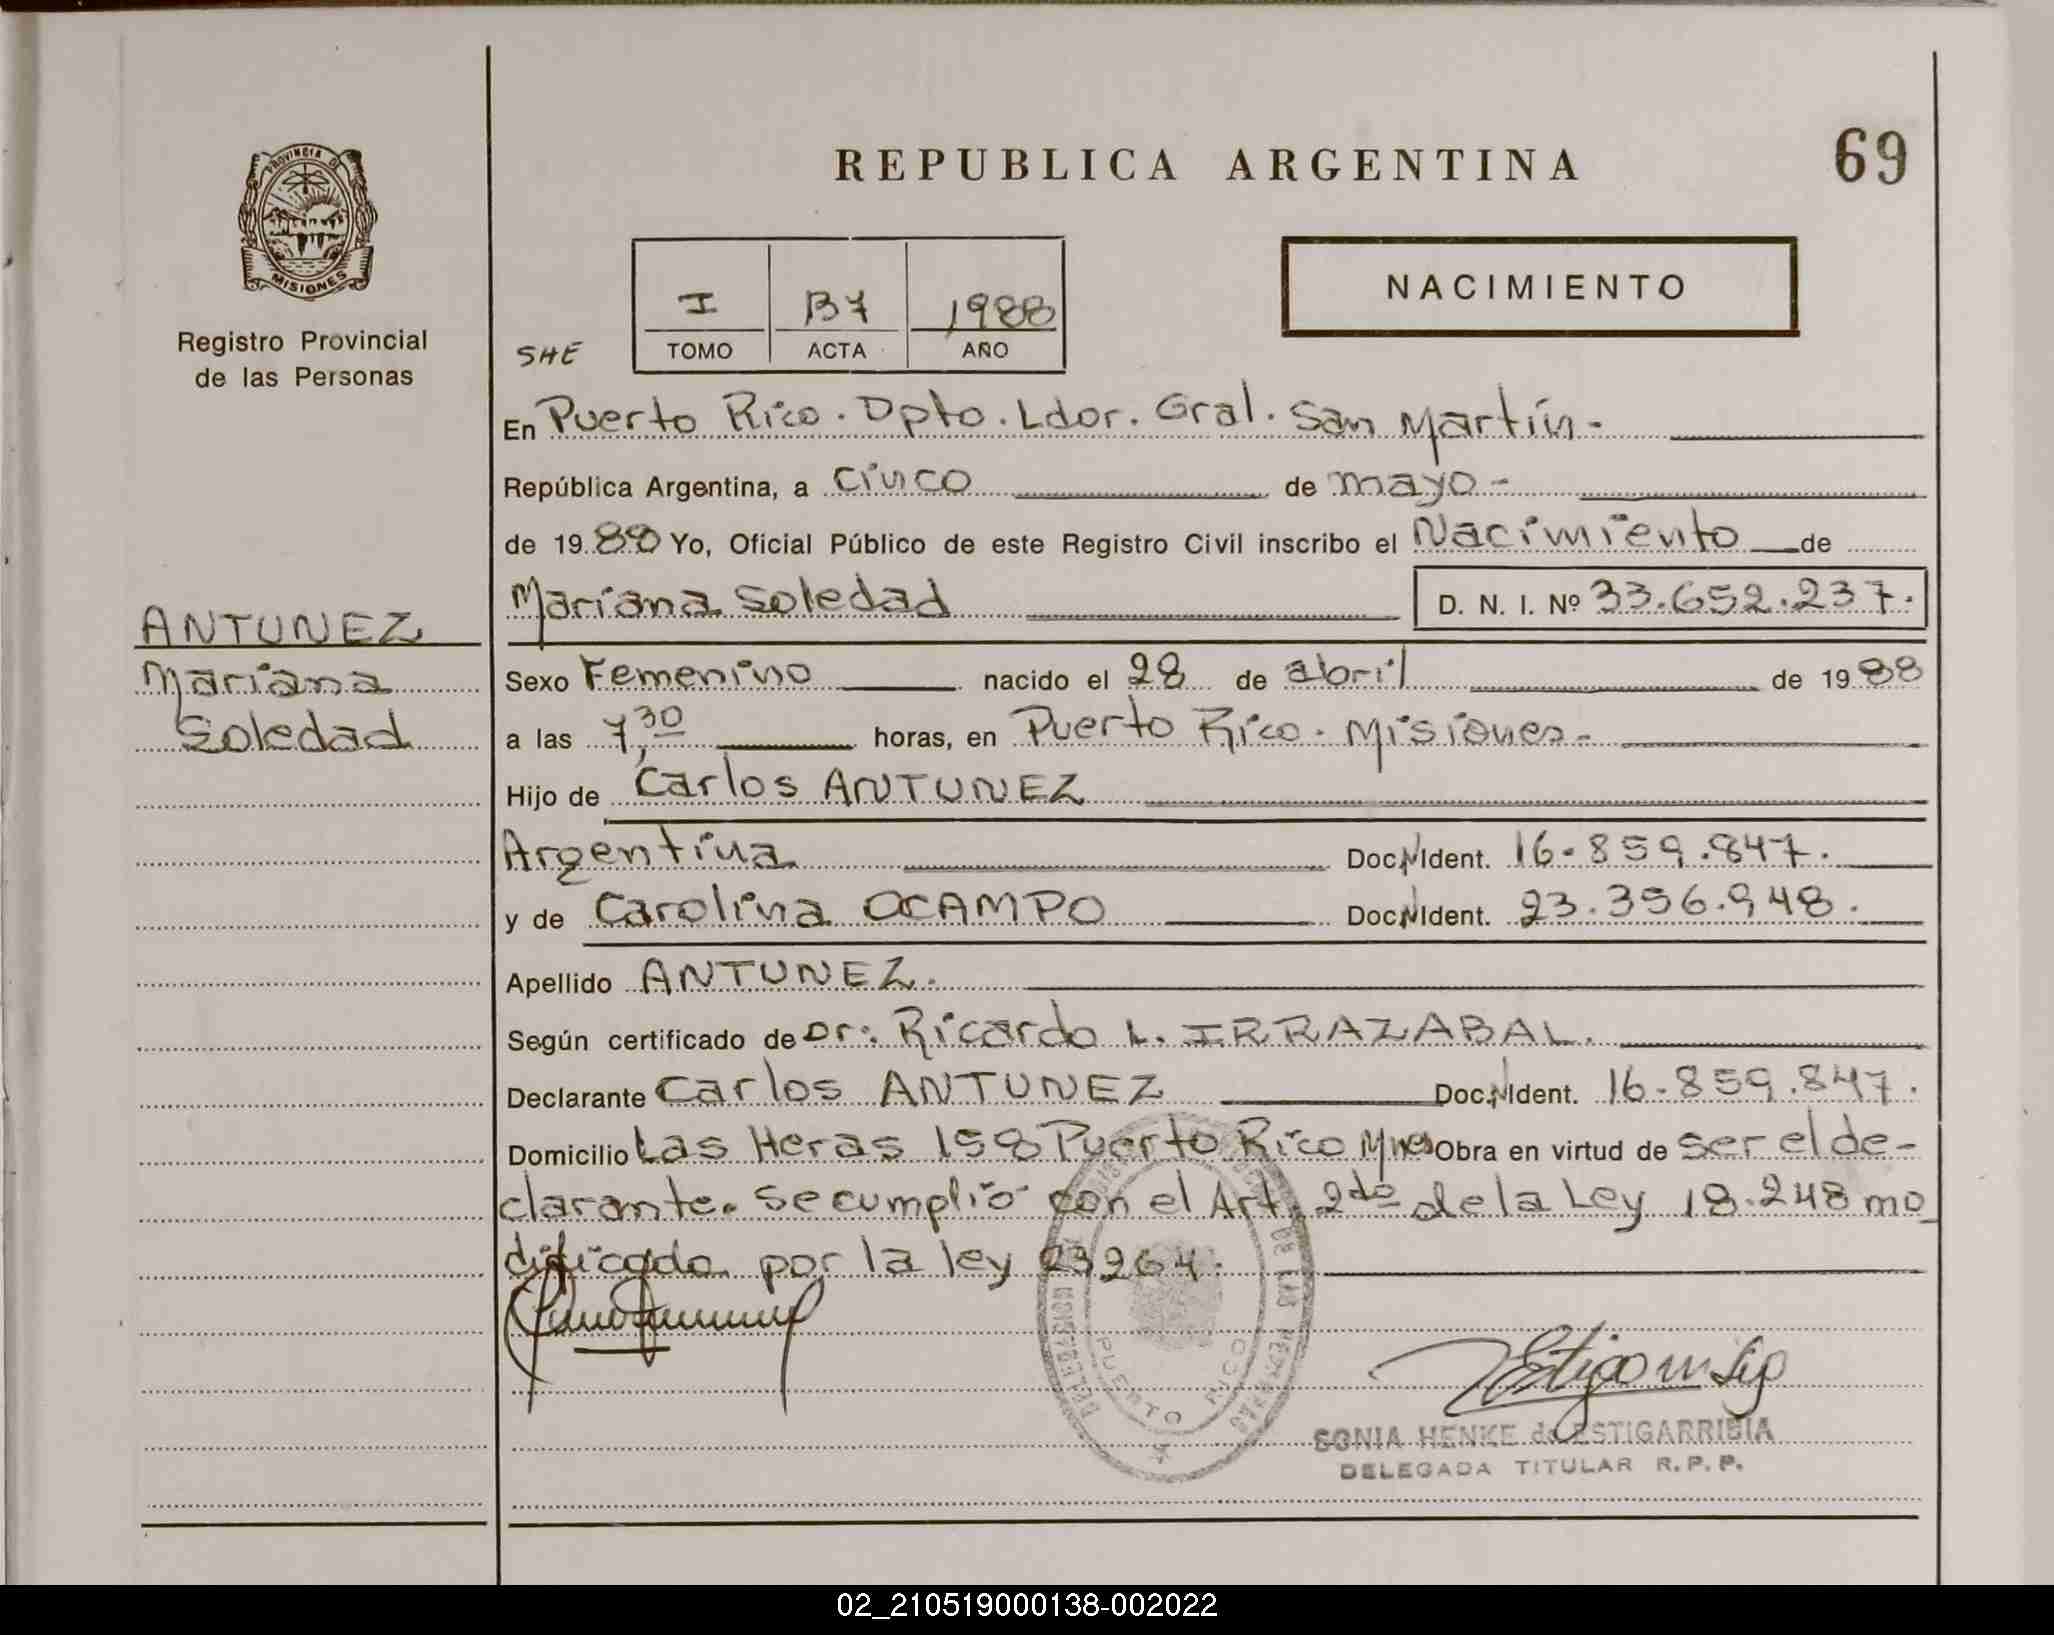 REPUBLICA ARGENTINA
69
PROVINCIA DE
MISIONES
Registro Provincial
de las Personas
NACIMIENTO
I 137 1988
TOMO ACTA AÑO
SHE
En Puerto Rico. Dpto. Ldor. Gral. San Martín-
República Argentina, a cinco de mayo-
de 1988 Yo, Oficial Público de este Registro Civil inscribo el Nacimiento de
Mariana Soledad D. N. I. Nº 33.652.237.
ANTUNEZ
Mariana
Soledad
Sexo Femenino nacido el 28 de abril de 1988
a las 7,30 horas, en Puerto Rico. Misiones-
Hijo de Carlos ANTUNEZ
Argentina Doc. N Ident. 16.859.847.
y de Carolina OCAMPO Doc. N Ident. 23.356.948.
Apellido ANTUNEZ.
Según certificado de Dr: Ricardo L. IRRAZABAL.
Declarante Carlos ANTUNEZ Doc. N Ident. 16.859.847.
Domicilio Las Heras 158 Puerto Rico Mnes Obra en virtud de ser el de-
clarante. Se cumplió con el Art. 2do de la Ley 18.248 mo
dificada por la ley 23264.
DE LAS PERSONAS
PUERTO RICO
SONIA HENKE de ESTIGARRIBIA
DELEGADA TITULAR R.P.P.
02_210519000138-002022